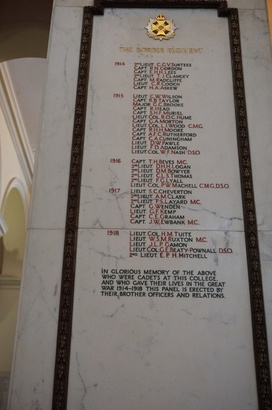 THE BORDER REGIMENT
1914 2ND LIEUT C.G.V. SURTEES
CAPT R.N. GORDON
CAPT E.H.H. LEES
2ND LIEUT T.J. CLANCEY
CAPT M. RADCLIFFE
CAPT C. LODDEN
CAPT H.A. ASKEW
1915 LIEUT C.W. WILSON
CAPT R.B. TAYLOR
MAJOR G.C. BROOKE
CAPT R. HEAD
CAPT S.H.F. MURIEL
LIEUT COL. R.O.C. HUME
CAPT C.A. MORTON
LIEUT COL. L.I. WOOD C.M.G.
CAPT R.H.H. MOORE
CAPT A.F.C. RUTHERFORD
CAPT C.A. CUNINGHAM
LIEUT D.W. FAWLE
LIEUT F.D. ADAMSON
LIEUT COL. W.F. NASH D.S.O.
1916 CAPT T.H. BEVES M.C.
2ND LIEUT D.H.H. LOGAN
2ND LIEUT D.M. BOWYER
2ND LIEUT G.L.S. THOMAS
2ND LIEUT F.G. LYALL
LIEUT COL. P.W. MACHELL C.M.G. D.S.O.
1917 LIEUT S.C. CHEVERTON
2ND LIEUT A.M. CLARK
2ND LIEUT P.S. LAYARD M.C.
CAPT G. WENDEN
LIEUT G.F. KEMP
CAPT C.E. GRAHAM
CAPT J.W. EWBANK M.C.
1918 LIEUT COL. H.M. TUITE
LIEUT W.S.M. RUXTON M.C.
LIEUT J.L.P. GAMON
LIEUT COL. G.E. BEATY-POWNALL D.S.O.
2ND LIEUT E.P.H. MITCHELL
IN GLORIOUS MEMORY OF THE ABOVE
WHO WERE CADETS AT THIS COLLEGE,
AND WHO GAVE THEIR LIVES IN THE GREAT
WAR 1914-1918 THIS PANEL IS ERECTED BY
THEIR BROTHER OFFICERS AND RELATIONS.